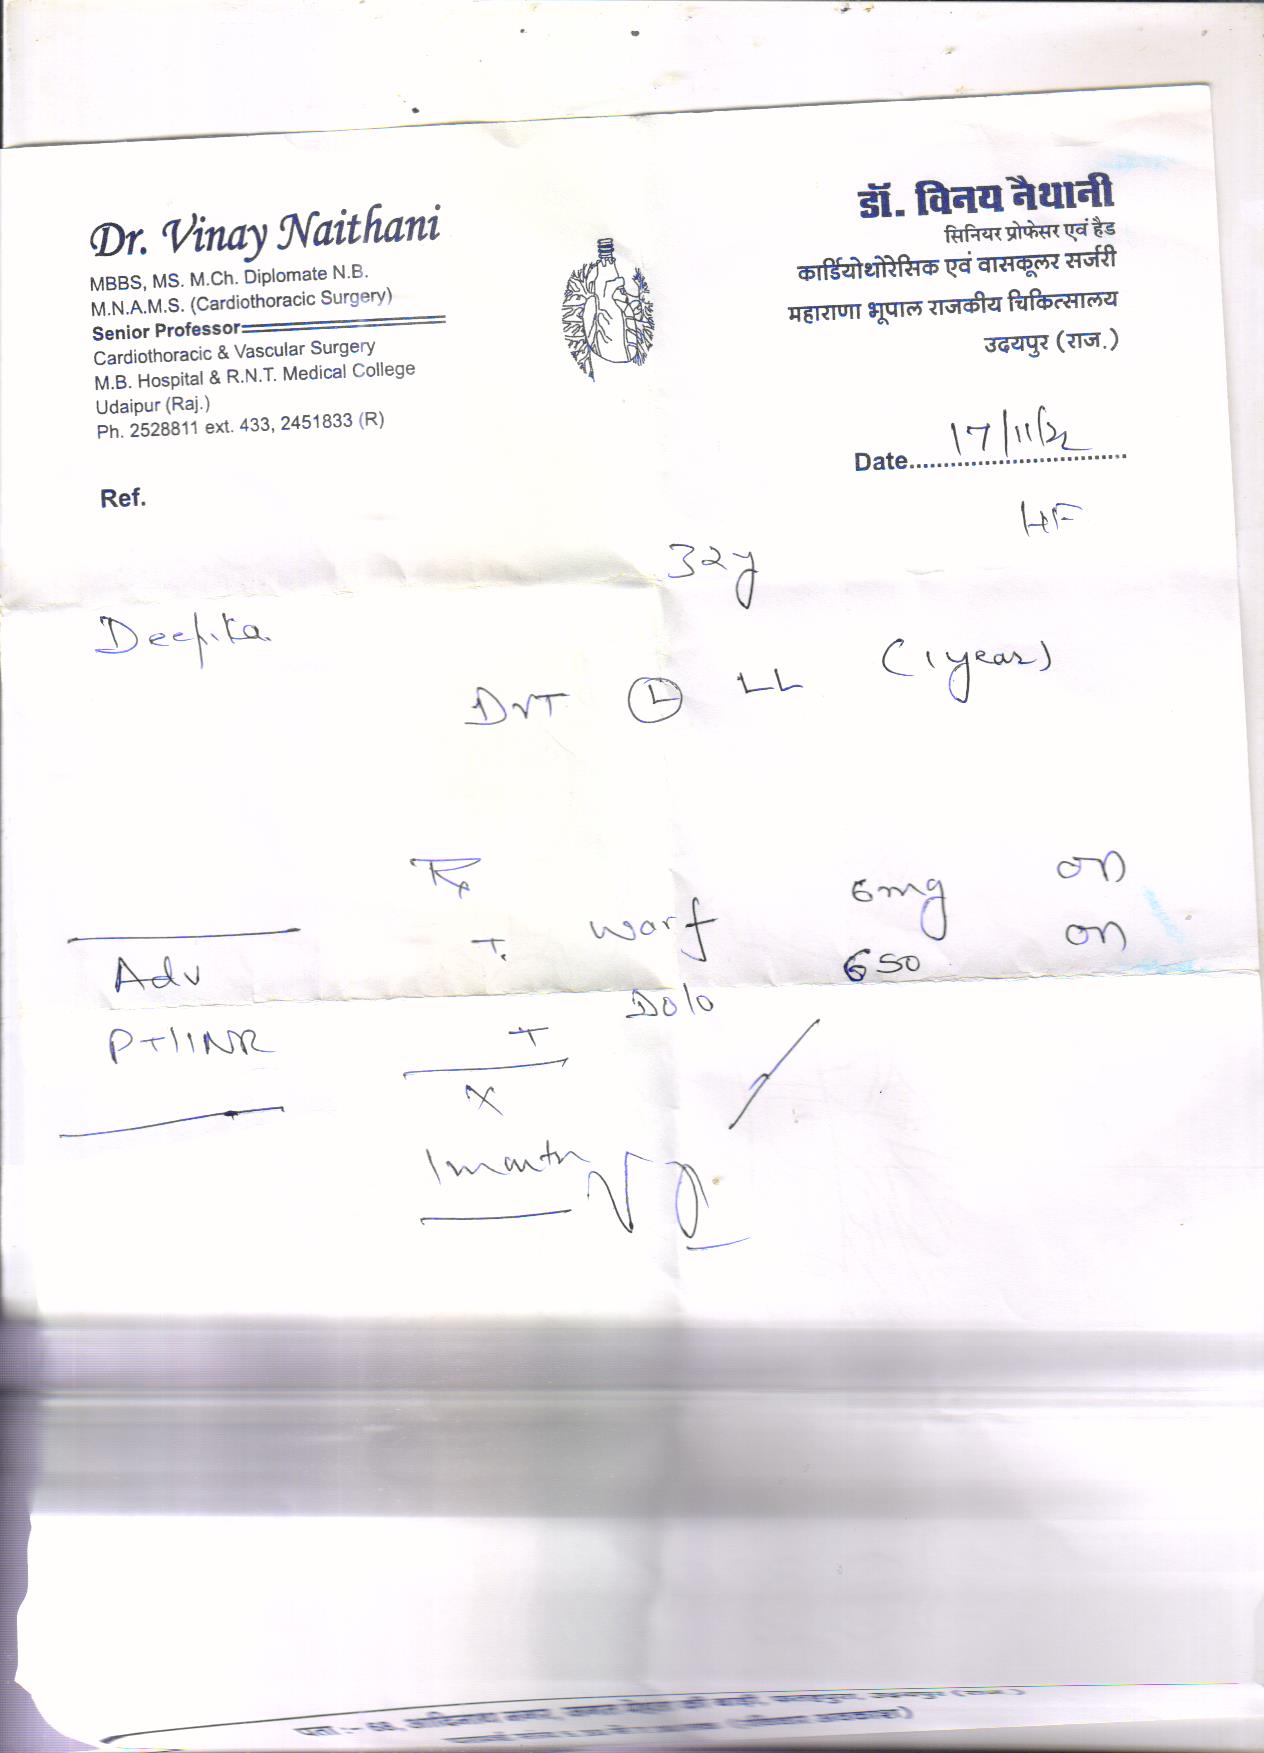 Dr. Vinay Naithani
MBBS, MS. M.Ch. Diplomate N.B.
M.N.A.M.S. (Cardiothoracic Surgery)
Senior Professor
Cardiothoracic & Vascular Surgery
M.B. Hospital & R.N.T. Medical College
Udaipur (Raj.)
Ph. 2528811 ext. 433, 2451833 (R)
डॉ. विनय नैथानी
सिनियर प्रोफेसर एवं हैड
कार्डियोथोरेसिक एवं वासकूलर सर्जरी
महाराणा भूपाल राजकीय चिकित्सालय
उदयपुर (राज.)
Date 17/11/22
Ref.
HF
32y
Deepika
DVT Ⓛ LL (1 year)
Rx
T. Warf 6mg OD
T Dolo 650 OD
x
1 month
Adv
PT/INR